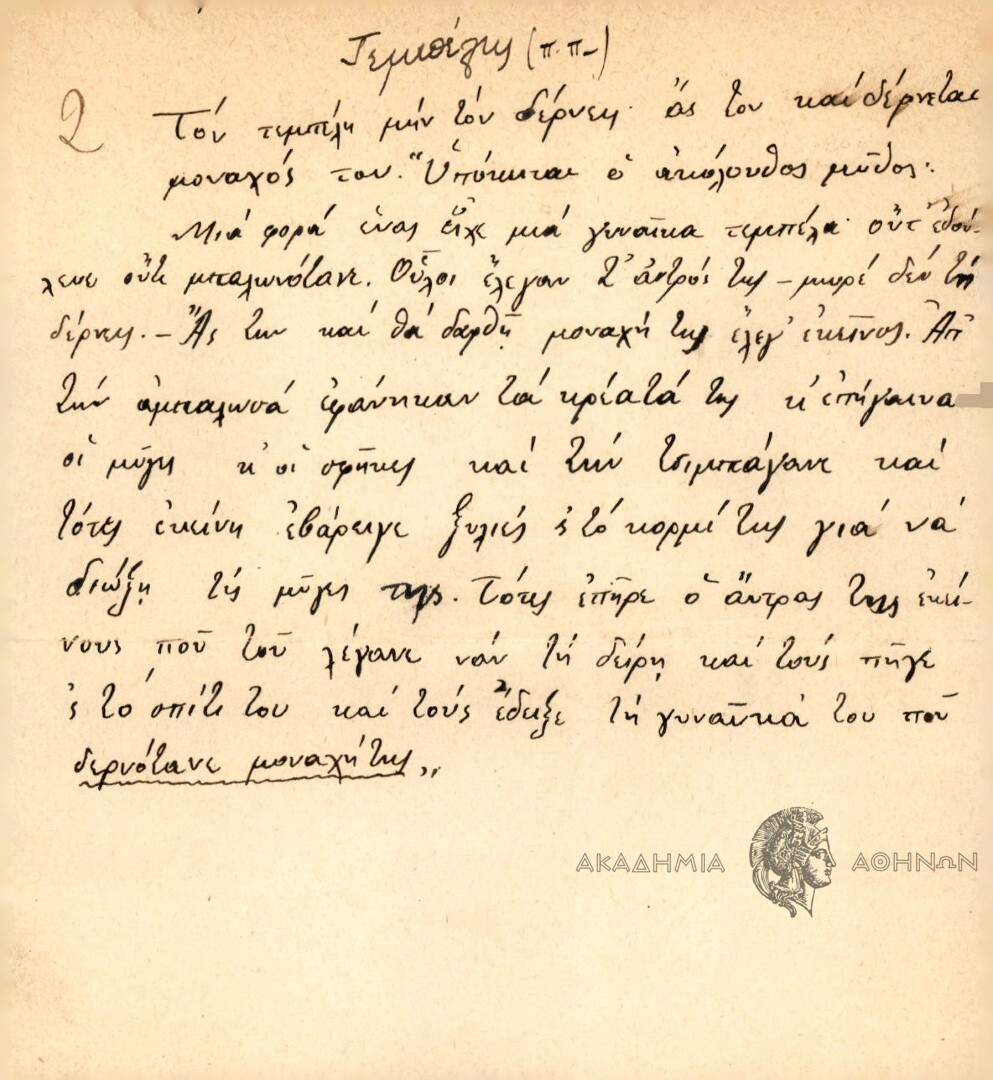 Τεμπέλης (π.π-)
2 Τόν τεμπέλη μήν τόν δέρνεις· ἄς τον καί δέρνεται
μοναχός του. "Ὑπόκειται ὁ ἀκόλουθος μῦθος·
Μιά φορά ἕνας εἶχε μιά γυναῖκα τεμπέλα· οὔτ' ἐδού-
λευε οὔτε μπαλωνότανε. Οὗλοι ἔλεγαν τ' ἀντρός της – μωρέ δέν τή
δέρνεις. – Ἄς την καί θά δαρθῇ μοναχή της ἔλεγ' ἐκεῖνος. Ἀπ'
τήν ἀμπαλωσά ἐφάνηκαν τά κρέατά της κ' ἐπήγαινα
οἱ μῦγες κ' οἱ σφῆκες καί τήν τσιμπάγανε καί
τότες ἐκείνη ἐβάρειγε ξυλιές ς τό κορμί της γιά νά
διώξῃ τίς μῦγες της. Τότες ἐπῆρε ὁ ἄντρας της ἐκεί-
νους ποῦ τοῦ λέγανε νάν τή δείρῃ καί τούς πῆγε
ς τό σπίτι του καί τούς ἔδειξε τή γυναῖκά του ποῦ
δερνότανε μοναχή της„
ΑΚΑΔΗΜΙΑ ΑΘΗΝΩΝ